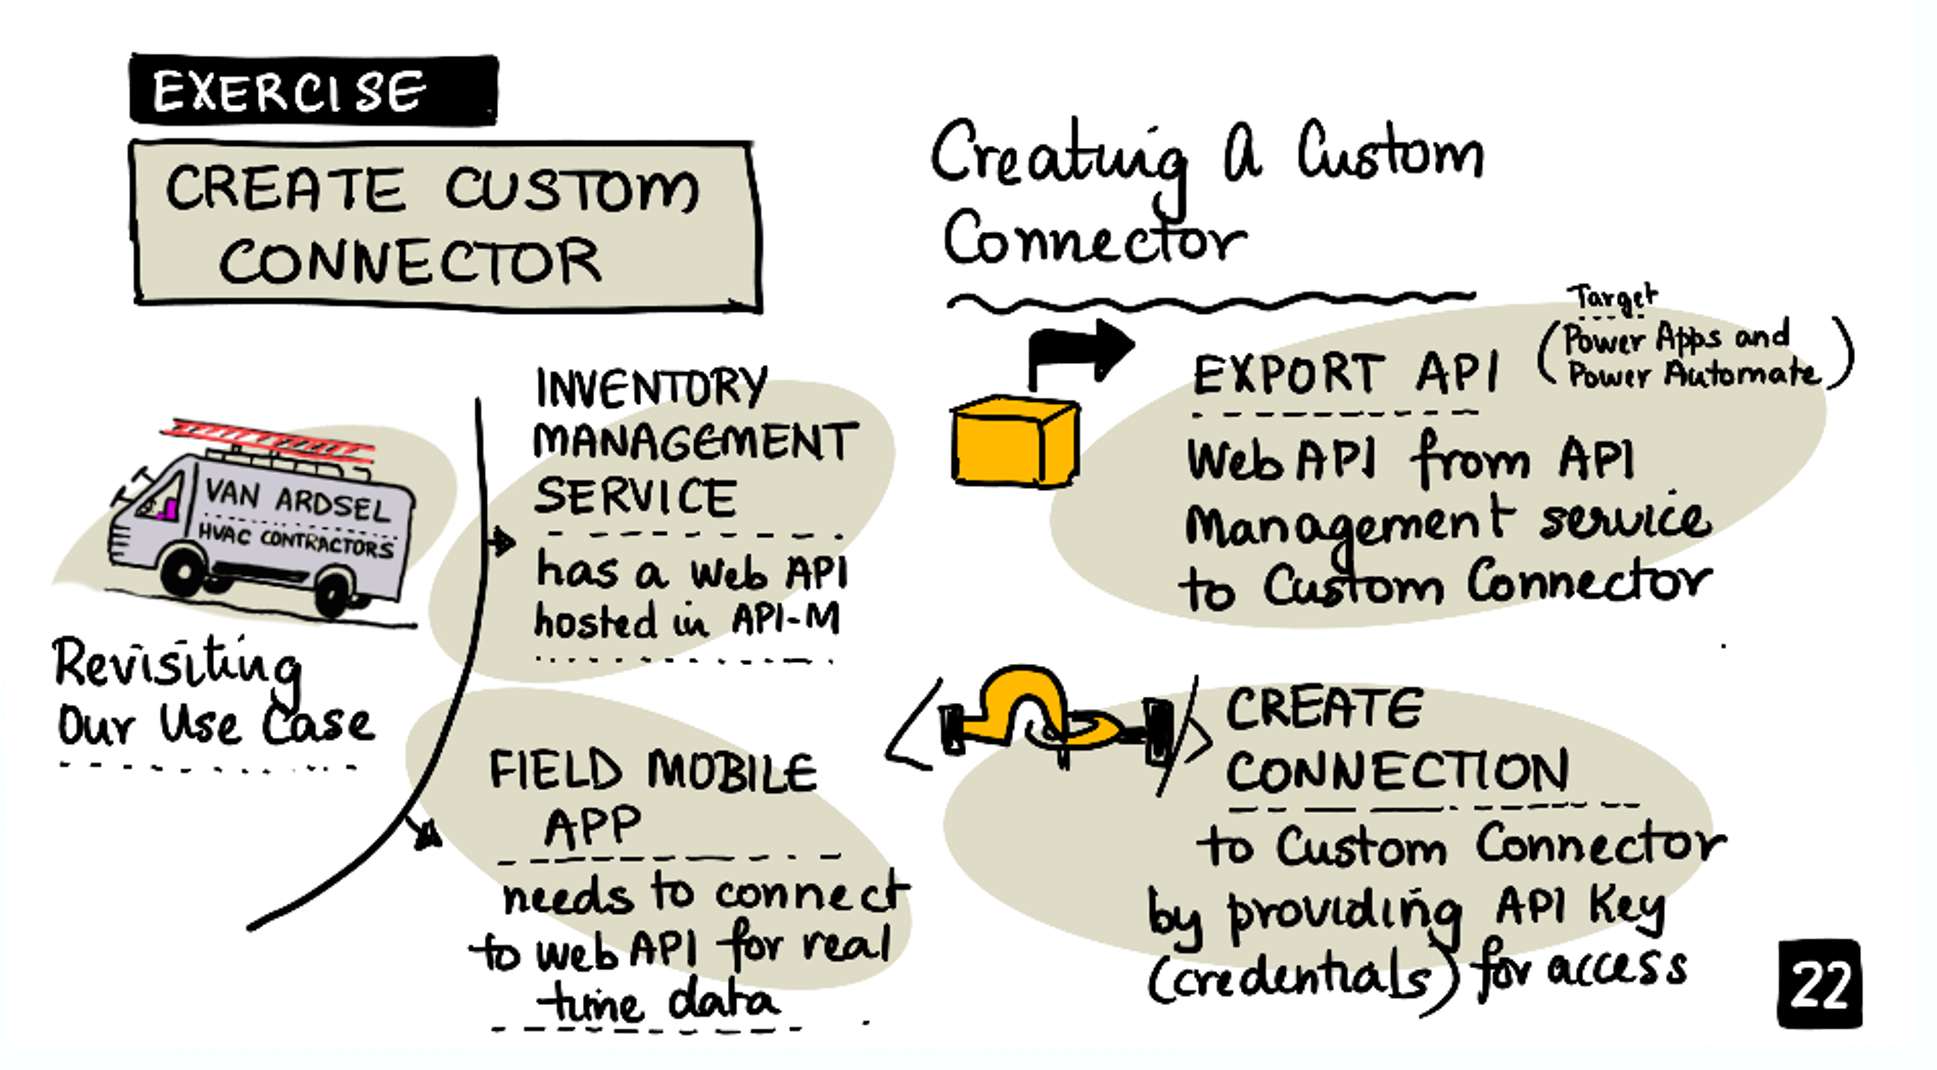 EXERCISE
CREATE CUSTOM
CONNECTOR
VAN ARDSEL
HVAC CONTRACTORS
Revisiting
Our Use Case
INVENTORY
MANAGEMENT
SERVICE
has a Web API
hosted in API-M
FIELD MOBILE
APP
needs to connect
to web API for real
time data
Creating A Custom
Connector
Target
(Power Apps and
Power Automate)
EXPORT API
Web API from API
Management service
to Custom Connector
CREATE
CONNECTION
to Custom Connector
by providing API Key
(credentials) for access
22